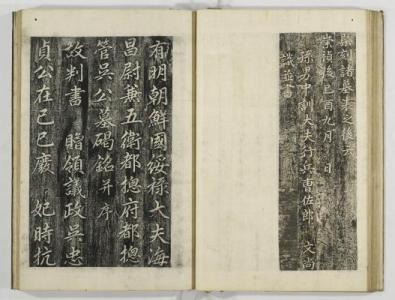 恭刻諸墓表之後云
崇禎後己酉九月 日
孫男中訓大夫行兵曹佐郎 文尚
識並書
有明朝鮮國綏祿大夫海
昌尉兼五衛都摠府都摠
管吳公墓碣銘并序
故判書 贈領議政吳忠
貞公在己巳廢 妃時抗